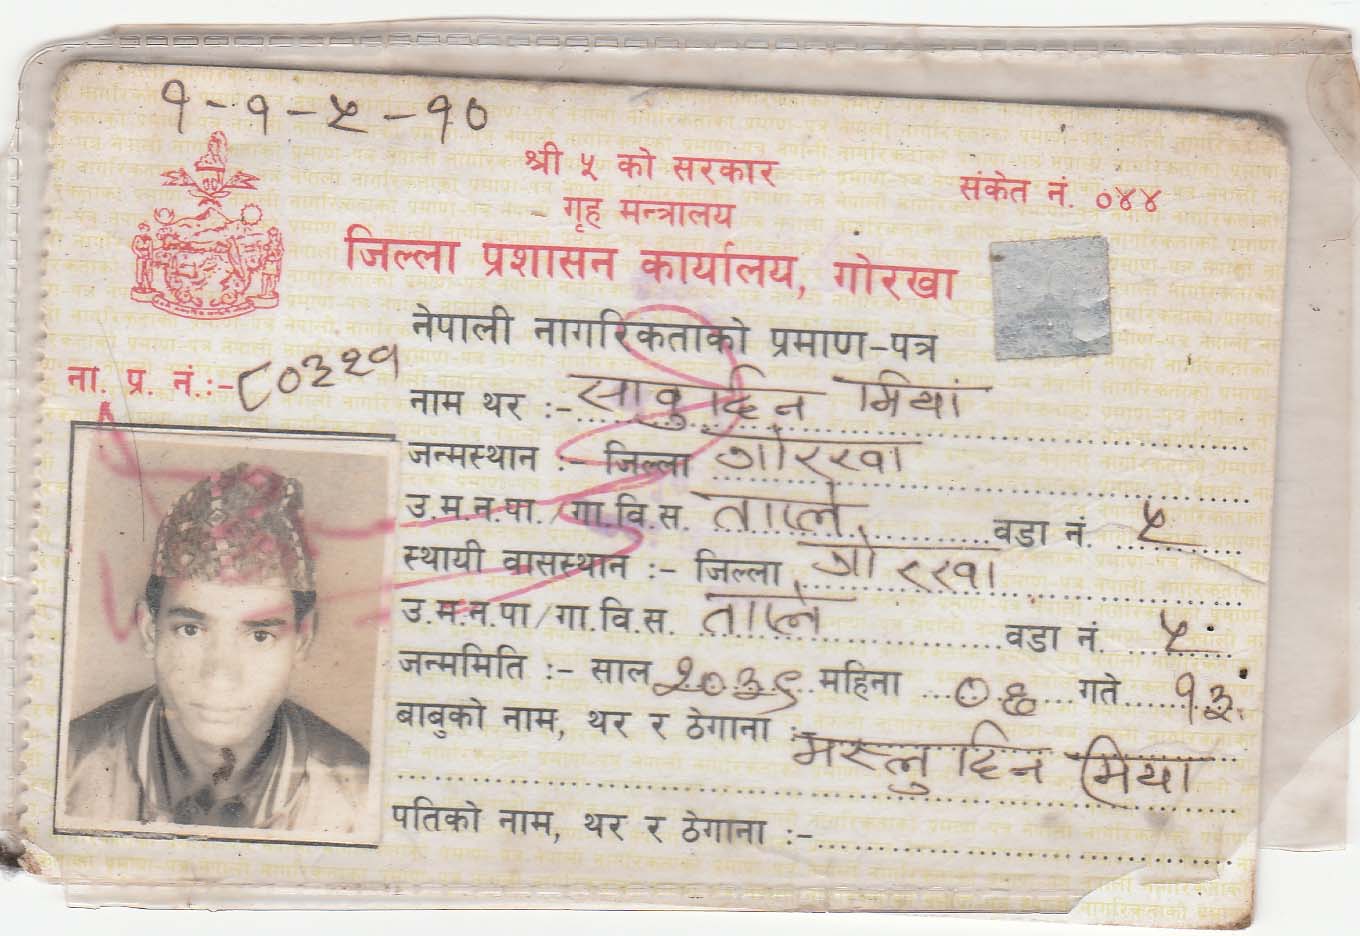 १-१-५-१०
श्री ५ को सरकार
गृह मन्त्रालय
संकेत नं. ०४४
जिल्ला प्रशासन कार्यालय, गोरखा
नेपाली नागरिकताको प्रमाण-पत्र
ना. प्र. नं.:- ८०३२१
नाम थर :- साबुद्दिन मियां
जन्मस्थान :- जिल्ला गोरखा
उ.म.न.पा./गा.वि.स. ताप्ले वडा नं. ५
स्थायी वासस्थान :- जिल्ला गोरखा
उ.म.न.पा/गा.वि.स. ताप्ले वडा नं. ५
जन्ममिति :- साल २०३९ महिना ०६ गते १३
बाबुको नाम, थर र ठेगाना : मिया
पतिको नाम, थर र ठेगाना :-